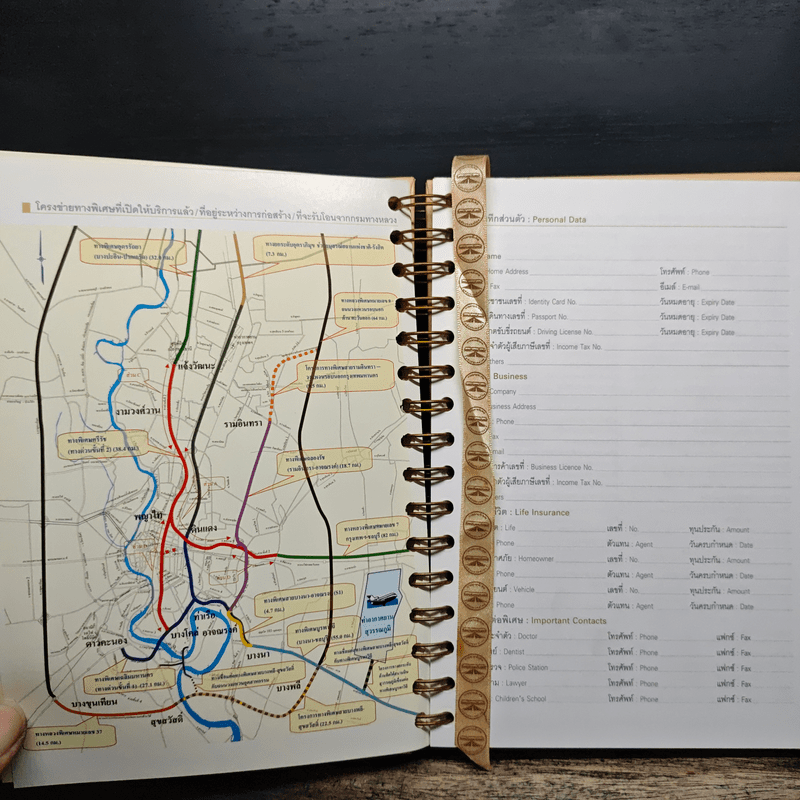 โครงข่ายทางพิเศษที่เปิดให้บริการแล้ว/ที่อยู่ระหว่างการก่อสร้าง/ที่จะรับโอนจากกรมทางหลวง
ทางพิเศษอุดรรัถยา
(บางปะอิน-ปากเกร็ด) (32.0 กม.)
แจ้งวัฒนะ
งามวงศ์วาน
รามอินทรา
ทางพิเศษศรีรัช
(ทางด่วนขั้นที่ 2) (38.4 กม.)
ทางพิเศษฉลองรัช
(รามอินทรา-อาจณรงค์) (18.7 กม.)
พญาไท
ดินแดง
ทางหลวงพิเศษหมายเลข 7
กรุงเทพฯ-ชลบุรี (82 กม.)
ทางพิเศษสายบางนา-อาจณรงค์ (S1)
(4.7 กม.)
ท่าอากาศยาน
สุวรรณภูมิ
ท่าเรือ
บางโคล่ อาจณรงค์
ทางพิเศษบูรพาวิถี
(บางนา-ชลบุรี) (55.0 กม.)
ดาวคะนอง
บางนา
ทางพิเศษเฉลิมมหานคร
(ทางด่วนขั้นที่ 1) (27.1 กม.)
บางพลี
บางขุนเทียน
สุขสวัสดิ์
โครงการทางพิเศษสายบางพลี-
สุขสวัสดิ์ (22.5 กม.)
ทางหลวงพิเศษหมายเลข 37
(14.5 กม.)
ทึกส่วนตัว : Personal Data
ame
Home Address โทรศัพท์ : Phone
Fax อีเมล์ : E-mail
ชาชนเลขที่ : Identity Card No. วันหมดอายุ : Expiry Date
เดินทางเลขที่ : Passport No. วันหมดอายุ : Expiry Date
าตขับขี่รถยนต์ : Driving Licence No. วันหมดอายุ : Expiry Date
จำตัวผู้เสียภาษีเลขที่ : Income Tax No.
thers
Business
Company
usiness Address
: Phone
Fax
mail
ารค้าเลขที่ : Business Licence No.
จำตัวผู้เสียภาษีเลขที่ : Income Tax No.
ers
ชีวิต : Life Insurance
: Life เลขที่ : No. ทุนประกัน : Amount
Phone ตัวแทน : Agent วันครบกำหนด : Date
าศภัย : Homeowner เลขที่ : No. ทุนประกัน : Amount
Phone ตัวแทน : Agent วันครบกำหนด : Date
ยนต์ : Vehicle เลขที่ : No. ทุนประกัน : Amount
Phone ตัวแทน : Agent วันครบกำหนด : Date
ต่อพิเศษ : Important Contacts
จำตัว : Doctor โทรศัพท์ : Phone แฟกซ์ : Fax
ย์ : Dentist โทรศัพท์ : Phone แฟกซ์ : Fax
รวจ : Police Station โทรศัพท์ : Phone แฟกซ์ : Fax
าม : Lawyer โทรศัพท์ : Phone แฟกซ์ : Fax
Children's School โทรศัพท์ : Phone แฟกซ์ : Fax